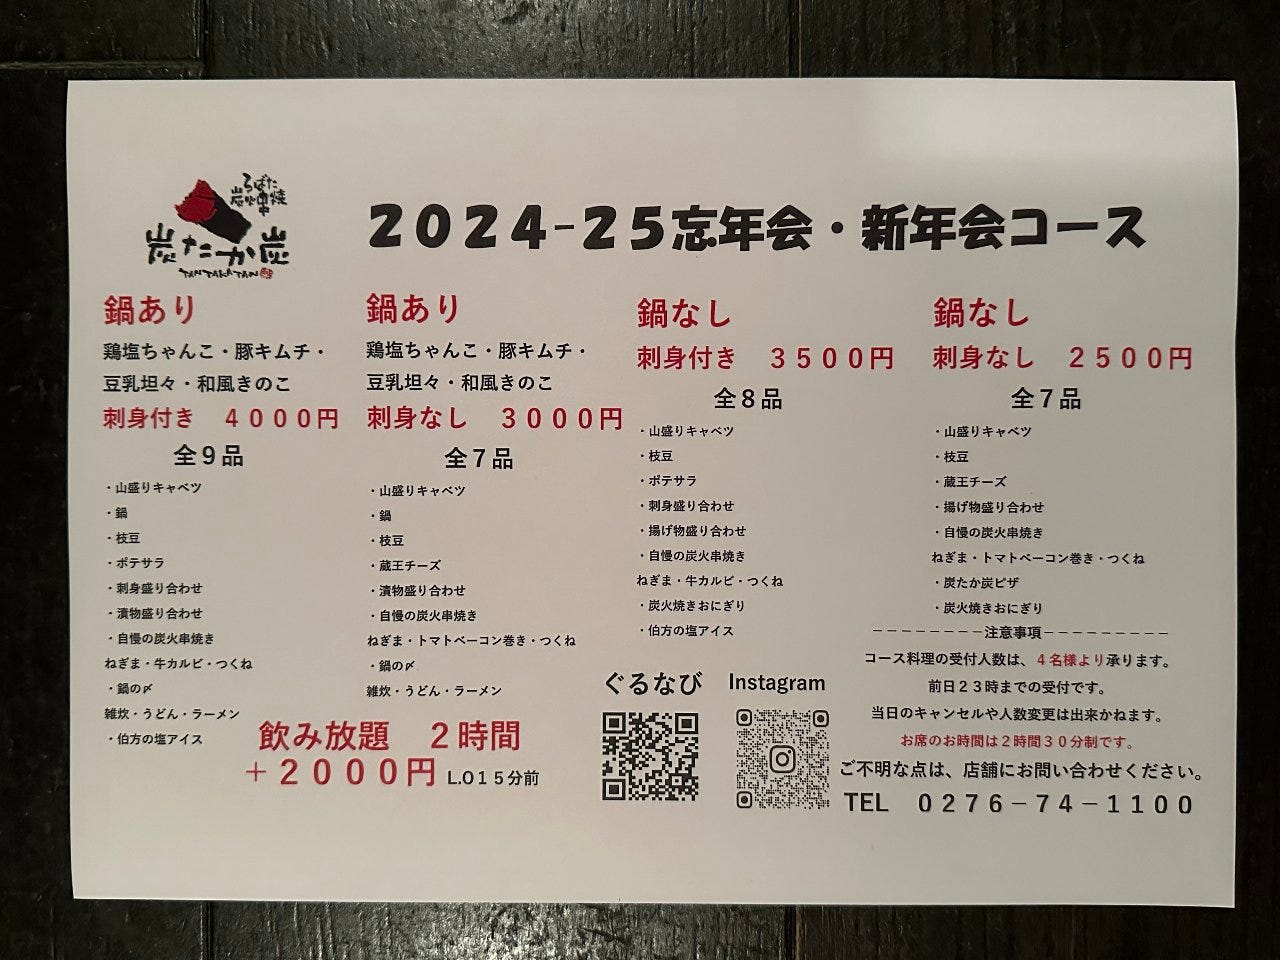 ろばた
炭火串焼
炭たか炭
TANTAKATAN
2024-25忘年会・新年会コース
鍋あり
鶏塩ちゃんこ・豚キムチ・
豆乳坦々・和風きのこ
刺身付き　４０００円
全９品
・山盛りキャベツ
・鍋
・枝豆
・ポテサラ
・刺身盛り合わせ
・漬物盛り合わせ
・自慢の炭火串焼き
ねぎま・牛カルビ・つくね
・鍋の〆
雑炊・うどん・ラーメン
・伯方の塩アイス
鍋あり
鶏塩ちゃんこ・豚キムチ・
豆乳坦々・和風きのこ
刺身なし　３０００円
全７品
・山盛りキャベツ
・鍋
・枝豆
・蔵王チーズ
・漬物盛り合わせ
・自慢の炭火串焼き
ねぎま・トマトベーコン巻き・つくね
・鍋の〆
雑炊・うどん・ラーメン
飲み放題　２時間
＋２０００円 L.O１５分前
鍋なし
刺身付き　３５００円
全８品
・山盛りキャベツ
・枝豆
・ポテサラ
・刺身盛り合わせ
・揚げ物盛り合わせ
・自慢の炭火串焼き
ねぎま・牛カルビ・つくね
・炭火焼きおにぎり
・伯方の塩アイス
ぐるなび
Instagram
鍋なし
刺身なし　２５００円
全７品
・山盛りキャベツ
・枝豆
・蔵王チーズ
・揚げ物盛り合わせ
・自慢の炭火串焼き
ねぎま・トマトベーコン巻き・つくね
・炭たか炭ピザ
・炭火焼きおにぎり
－－－－－－－－－注意事項－－－－－－－－－－
コース料理の受付人数は、４名様より承ります。
前日２３時までの受付です。
当日のキャンセルや人数変更は出来かねます。
お席のお時間は２時間３０分制です。
ご不明な点は、店舗にお問い合わせください。
TEL　０２７６－７４－１１００